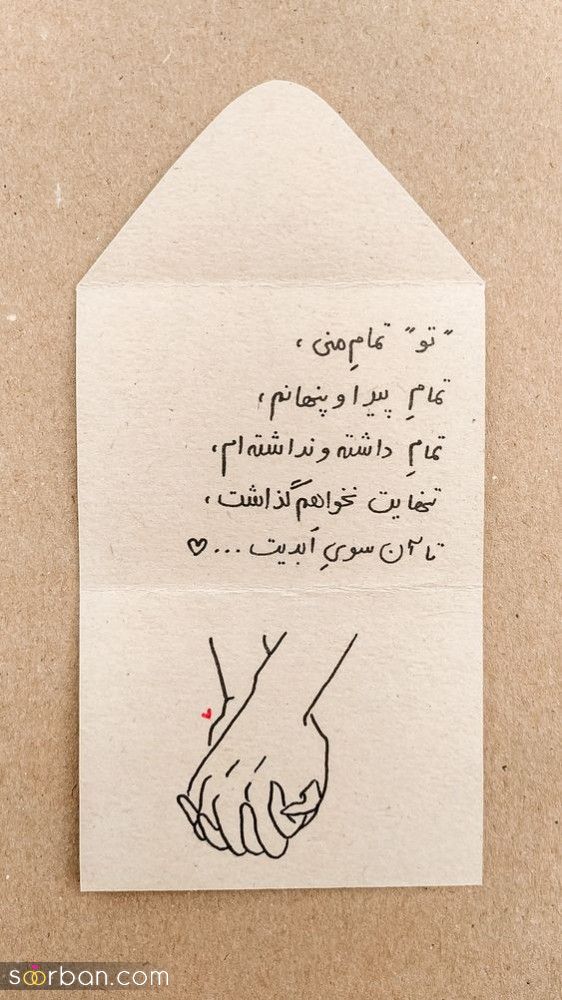 " تو " تمامِ منی ،
تمامِ پیدا و پنهانم ،
تمامِ داشته و نداشته‌ام ،
تنهایت نخواهم گذاشت ،
تا آن سویِ اَبدیت ... ♡
soorban.com